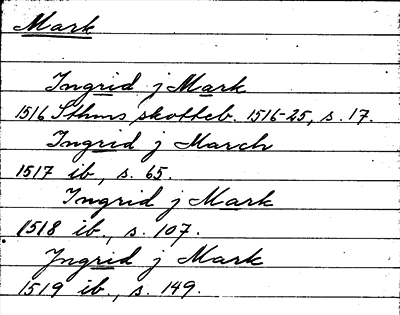 Mark
Ingrid j Mark
1516 Sthms skotteb. 1516-25, s. 17.
Ingrid j March
1517 ib., s. 65.
Ingrid j Mark
1518 ib., s. 107.
Ingrid j Mark
1519 ib., s. 149.